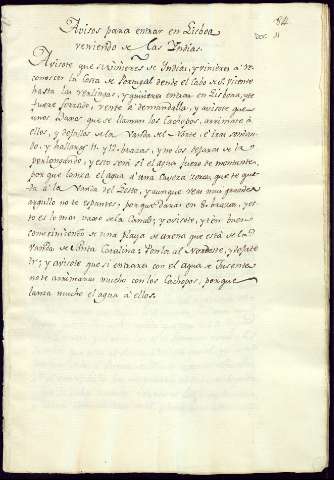 84
Avisos para entrar en Lisboa
veniendo de las Yndias.
Avisote que si vinieres de Yndias, y vinieres a re-
conocer la Costa de Portugal desde el Cabo de S. Vicente
hasta las verlingas, y quisieres entrar en Lisboa, y te
fuere forzado, vente a demandalla, y avisote que
unos Vajos que se llaman los Cachopos, arrimate a
ellos, y dejallos de la Vanda del Norte, e iras sondan-
do, y hallaras 11. y 12. brazas, y no los dejaras de ir
perlongando, y esto sera si el agua fuere de montante,
por que lanza el agua a una Caveza que te que-
da a la Vanda del Leste, y aunque veas muy grandes
no te espantes, porque daras en 8. brazas, y es-
to es lo mas vajo de la Canal; y avisote, y ten buen
conocimiento de una playa de arena que esta de la
Vanda de Santa Catalina: Ponlos al Nordeste, y
y avisote que si entrares con el agua de
no te arrimaras mucho con los Cachopos, porque
lanza mucho el agua a ellos.